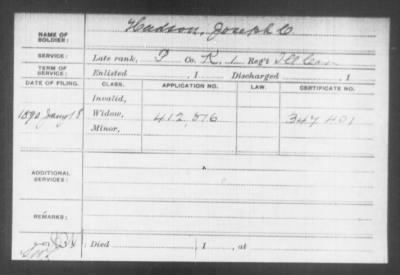 NAME OF SOLDIER: Hudson, Joseph C.
SERVICE: Late rank, P Co. K, 1 Reg't Ill Cav
TERM OF SERVICE: Enlisted , 1 Discharged , 1
DATE OF FILING. CLASS. APPLICATION NO. LAW. CERTIFICATE NO.
Invalid,
1890 Jany 18 Widow, 412,516 347 401
Minor,
ADDITIONAL SERVICES:
REMARKS:
Died 1 , at